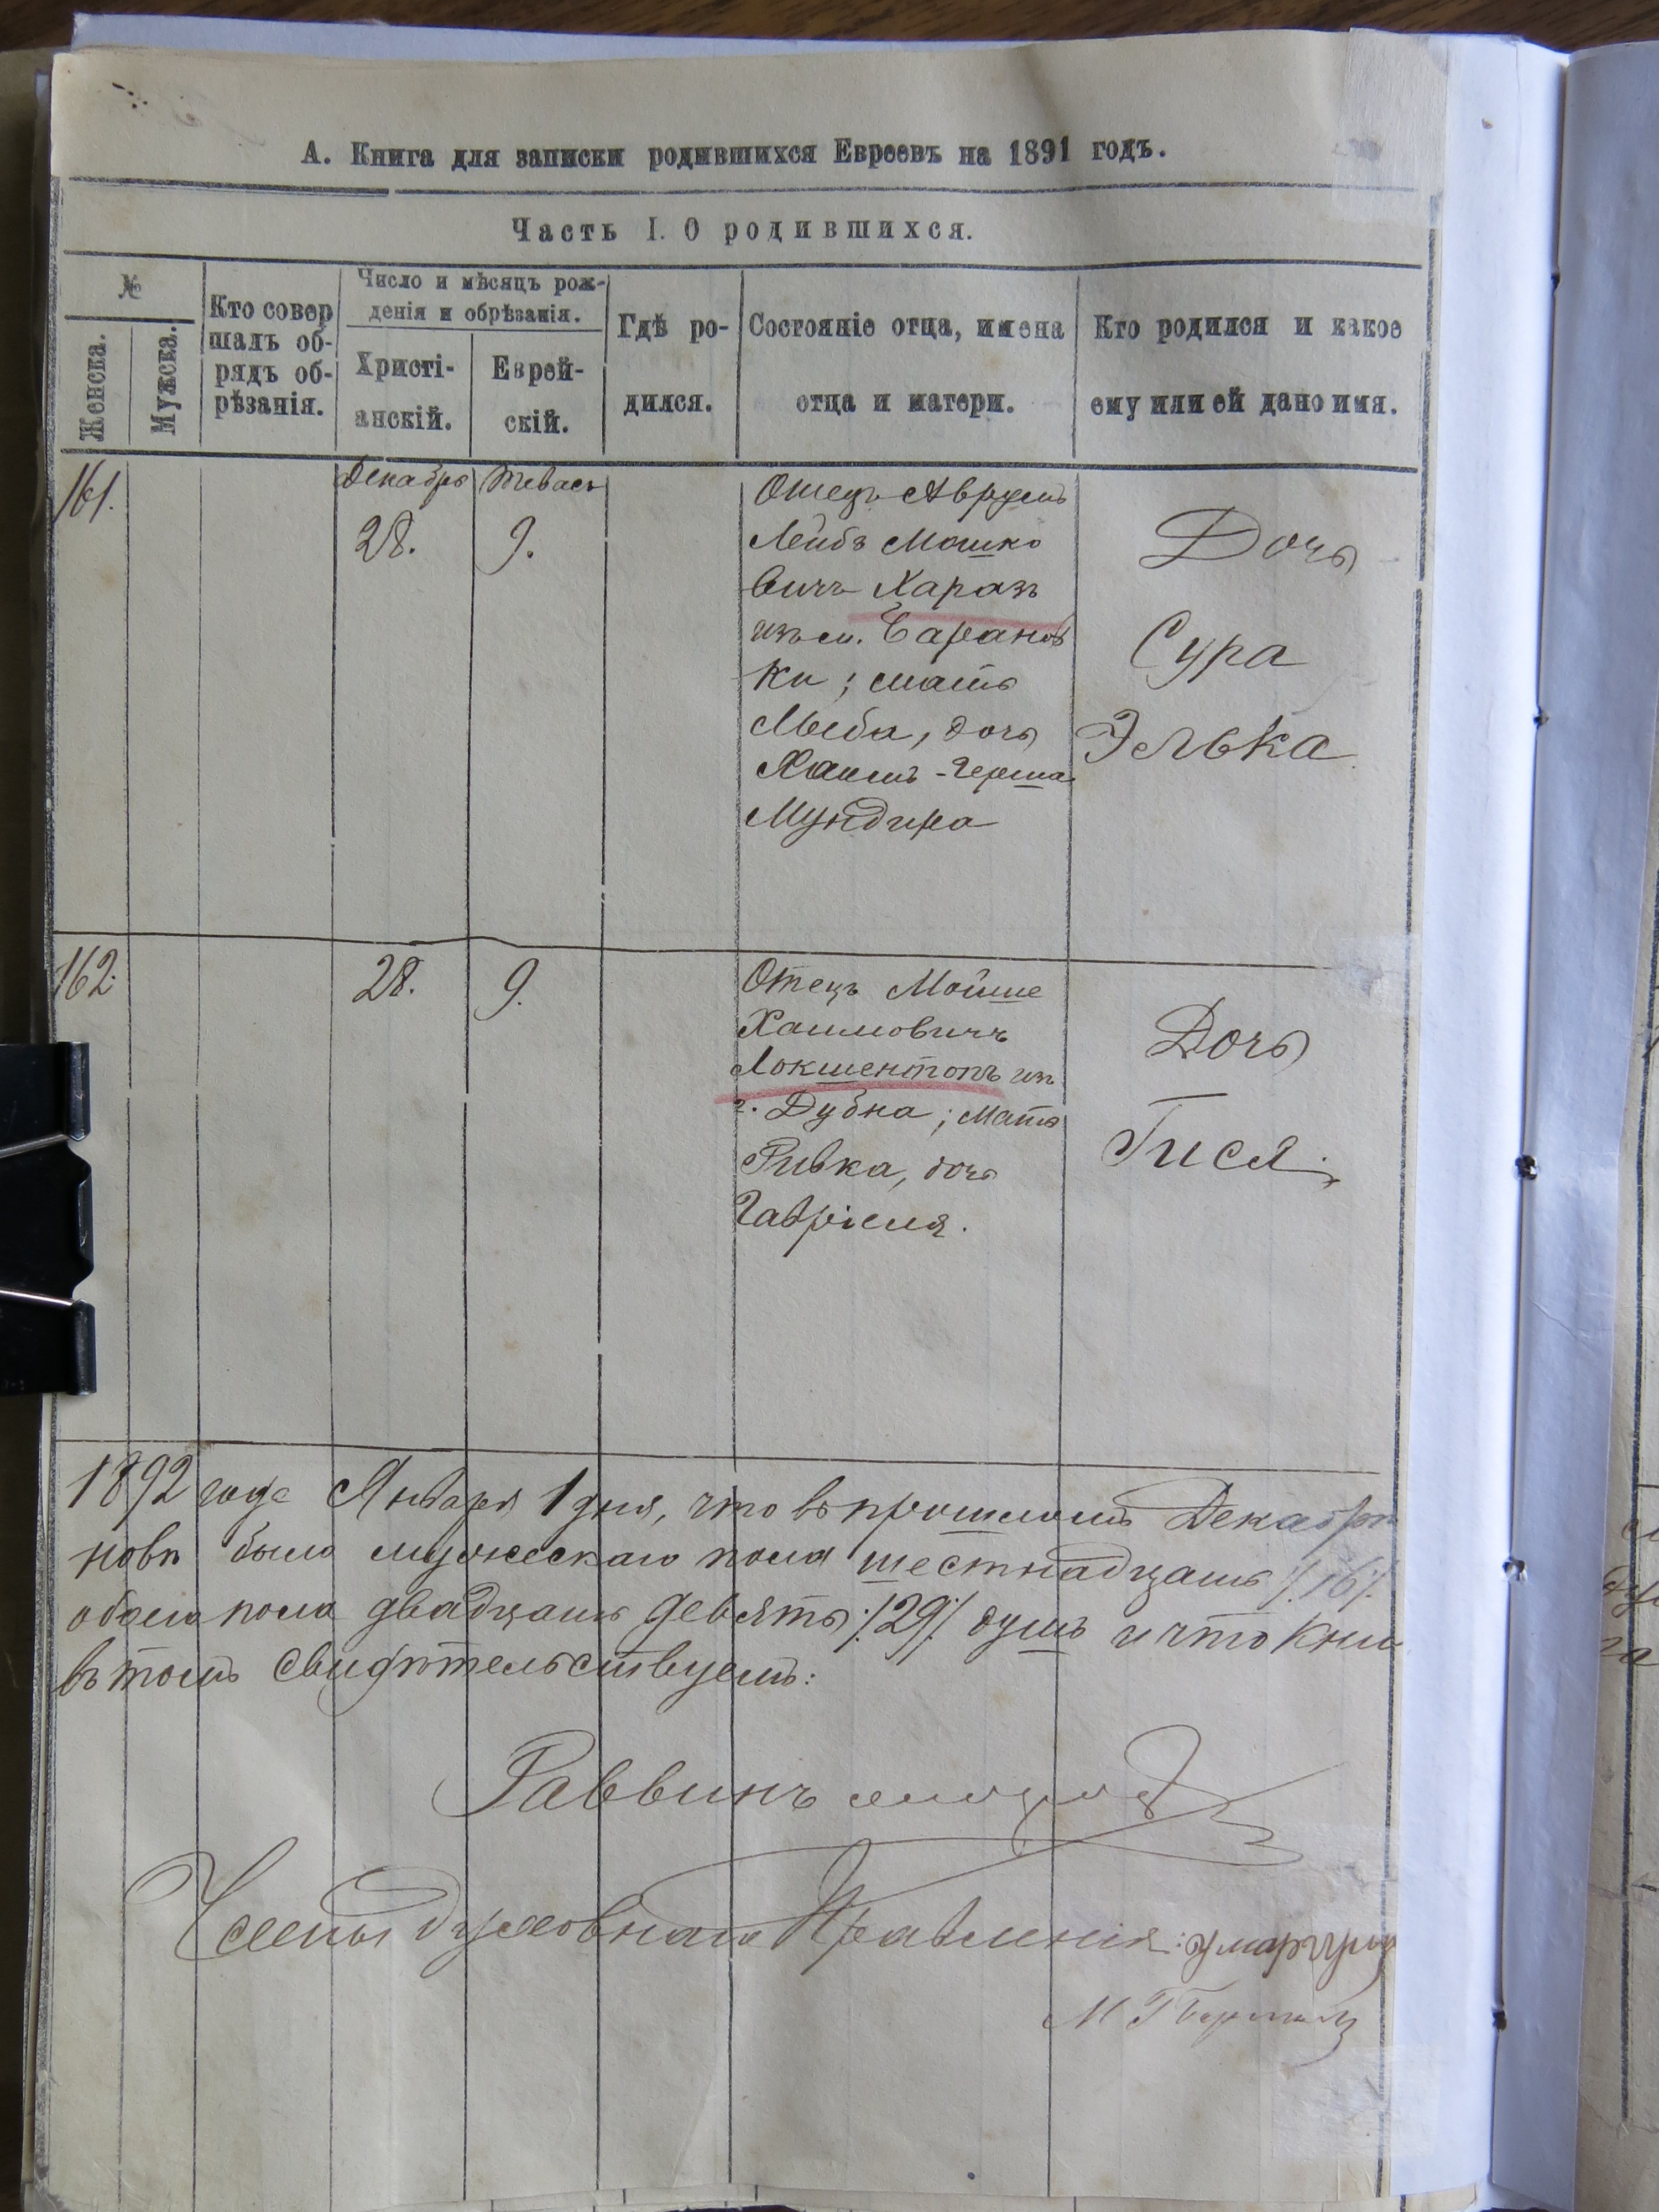 А. Книга для записки родившихся Евреевъ на 1891 годъ.
Часть I. О родившихся.
№
Женска.
Мужска.
Кто совер
шалъ об-
рядъ об-
рѣзанія.
Число и мѣсяцъ рож-
денія и обрѣзанія.
Христі-
анскій.
Еврей-
скій.
Гдѣ ро-
дился.
Состояніе отца, имена
отца и матери.
Кто родился и какое
ему или ей дано имя.
161.
Декабрь
28.
Тевасъ
9.
Отецъ Аврумъ
Лейбъ Мошко
вичъ Харазъ
изъ м. Баранов
ки; мать
дочь
Хаимъ-Герша
Мундира
Дочь
Сура
Элька
162.
28.
9.
Отецъ Мойше
Хаимовичъ
Локшентопъ изъ
г. Дубна; мать
Ривка, дочь
Гавріеля.
Дочь
Гися.
1892 года Января 1 дня, что въ прошломъ Декабрѣ
новѣ было мужескаго пола шестнадцать /:16:/
обоего пола двадцать девять /:29:/ душъ и что кни
въ томъ свидѣтельствуемъ:
Раввинъ
Члены духовнаго Правленія:
М